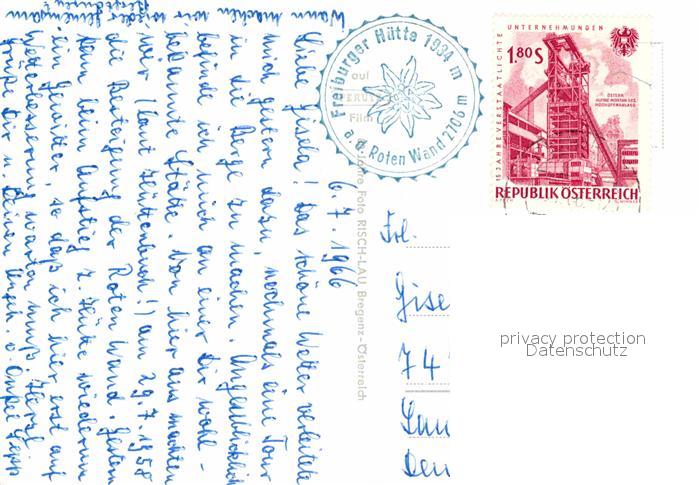 6.7.1966
Liebe Gisela! Das schöne Wetter verleitete
mich gestern dazu, nochmals eine Tour
in die Berge zu machen. Augenblicklich
befinde ich mich an einer Dir wohl-
bekannte Stätte. Von hier aus machten
wir (laut Hüttenbuch!) am 29.7.1958
die Besteigung der Roten Wand. Gestern
kam beim Aufstieg z. Hütte wiederum
ein Gewitter, so daß ich hier erst auf
Wetterbesserung warten muß. Herzl.
Grüße Dir u. Deinen
Wann machen wir wieder
Freiburger Hütte 1934 m
a.d. Roten Wand 2706 m
auf
PERUTZ
Film
Foto RISCH-LAU Bregenz-Österreich
15 JAHRE VERSTAATLICHTE UNTERNEHMUNGEN
1.80 S
ÖSTERR.
ALPINE MONTAN GES.
HOCHOFENANLAGE
REPUBLIK ÖSTERREICH
Frl.
Gise
74
privacy protection
Datenschutz